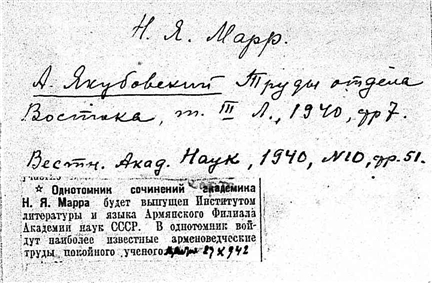 Н. Я. Марр.
А. Якубовский Труды отдела
Востока, т. III Л., 1940, стр 7.
Вестн. Акад. Наук, 1940, №10, стр. 51.
☆ Однотомник сочинений академика
Н. Я. Марра будет выпущен Институтом
литературы и языка Армянского Филиала
Академии наук СССР. В однотомник вой-
дут наиболее известные арменоведческие
труды покойного ученого.